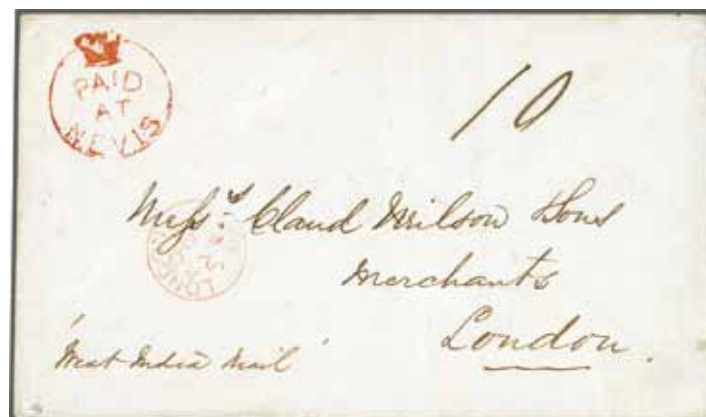 PAID
AT
NEVIS
10
Messrs. Claud Wilson Sons
Merchants
London.
"West India Mail"
LONDON